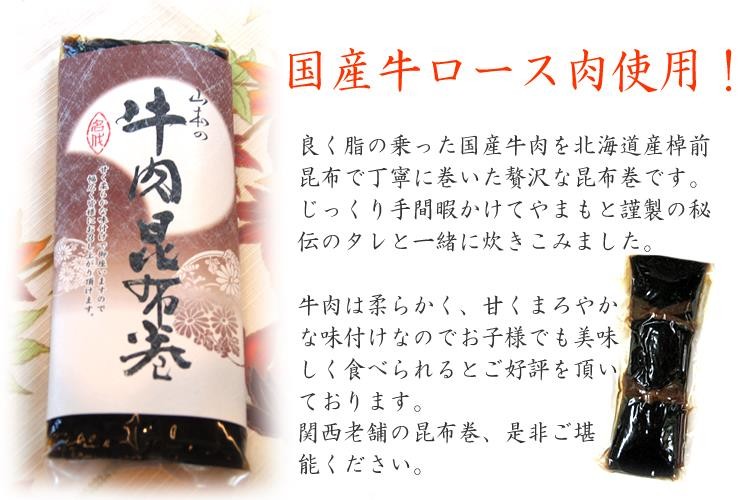 国産牛ロース肉使用！
良く脂の乗った国産牛肉を北海道産棹前
昆布で丁寧に巻いた贅沢な昆布巻です。
じっくり手間暇かけてやまもと謹製の秘
伝のタレと一緒に炊きこみました。
牛肉は柔らかく、甘くまろやか
な味付けなのでお子様でも美味
しく食べられるとご好評を頂い
ております。
関西老舗の昆布巻、是非ご堪
能ください。
山本の
牛肉昆布巻
名代
甘く柔らかな味付けで御座いますので
幅広く皆様にお召し上がり頂けます。